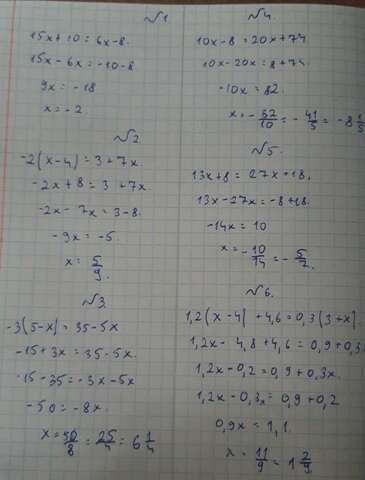 №1
15x+10=6x-8.
15x-6x=-10-8
9x=-18
x=-2.
№2
-2(x-4)=3+7x.
-2x+8=3+7x
-2x-7x=3-8.
-9x=-5.
x=5/9.
№3.
-3(5-x)=35-5x
-15+3x=35-5x.
-15-35=-3x-5x
-50=-8x.
x=50/8=25/4=6 1/4
№4.
10x-8=20x+74
10x-20x=8+74.
-10x=82.
x=-82/10=-41/5=-8 1/5
№5.
13x+8=27x+18.
13x-27x=-8+18.
-14x=10
x=-10/14=-5/7.
№6.
1,2(x-4)+4,6=0,3(3+x).
1,2x-4,8+4,6=0,9+0,3
1,2x-0,2=0,9+0,3x.
1,2x-0,3x=0,9+0,2
0,9x=1,1.
x=11/9=1 2/9